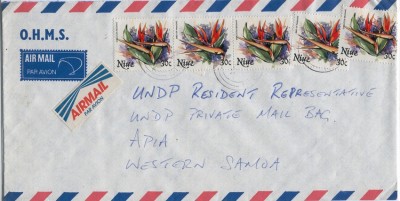 O.H.M.S.
AIR MAIL
PAR AVION
AIRMAIL
PAR AVION
Niue 30c
Niue 30c
Niue 30c
Niue 30c
Niue 30c
UNDP RESIDENT REPRESENTATIVE
UNDP PRIVATE MAIL BAG,
APIA
WESTERN SAMOA